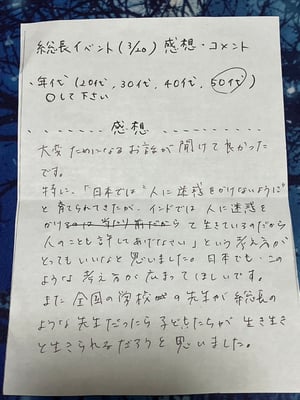 総長イベント(3/20) 感想・コメント
・年代(20代,30代,40代,50代)
○して下さい
感想
大変ためになるお話が聞けて良かった
です。
特に、「日本では"人に迷惑をかけないように"
と育てられてきたが、インドでは人に迷惑を
かけるのは当たり前だから て生きているのだから
人のことも許してあげなさい」という考え方が
とってもいいなと思いました。日本でも、この
ような考え方が広まってほしいです。
また全国の学校の先生が総長の
ような先生だったら子ども達たちが生き生き
と生きられるだろうと思いました。